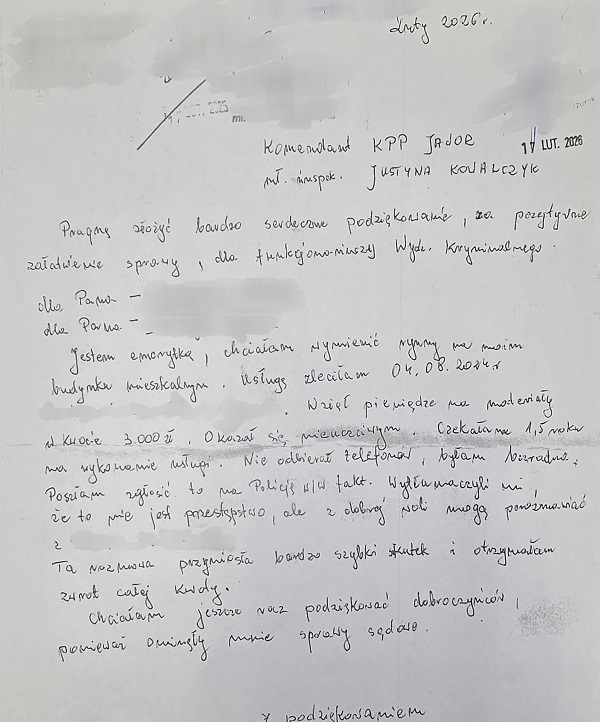 Luty 2026 r.
LUT. 2025
Komendant KPP JAWOR
17 LUT. 2026
mł. inspek. JUSTYNA KOWALCZYK
Pragnę złożyć bardzo serdeczne podziękowanie, za pozytywne
załatwienie sprawy, dla funkcjonariuszy Wydz. Kryminalnego.
dla Pana –
dla Pana –
Jestem emerytką, chciałam wymienić rynny na moim
budynku mieszkalnym. Usługę zleciłam 04.08.2024 r
. Wziął pieniądze na materiały
w kwocie 3.000 zł. Okazał się nieuczciwym. Czekałam 1,5 roku
na wykonanie usługi. Nie odbierał telefonów, byłam bezradna.
Poszłam zgłosić to na Policję w/w fakt. Wytłumaczyli mi,
że to nie jest przestępstwo, ale z dobrej woli mogą porozmawiać
z
Ta rozmowa przyniosła bardzo szybki skutek i otrzymałam
zwrot całej kwoty.
Chciałam jeszcze raz podziękować dobroczyńców,
ponieważ ominęły mnie sprawy sądowe.
z podziękowaniem